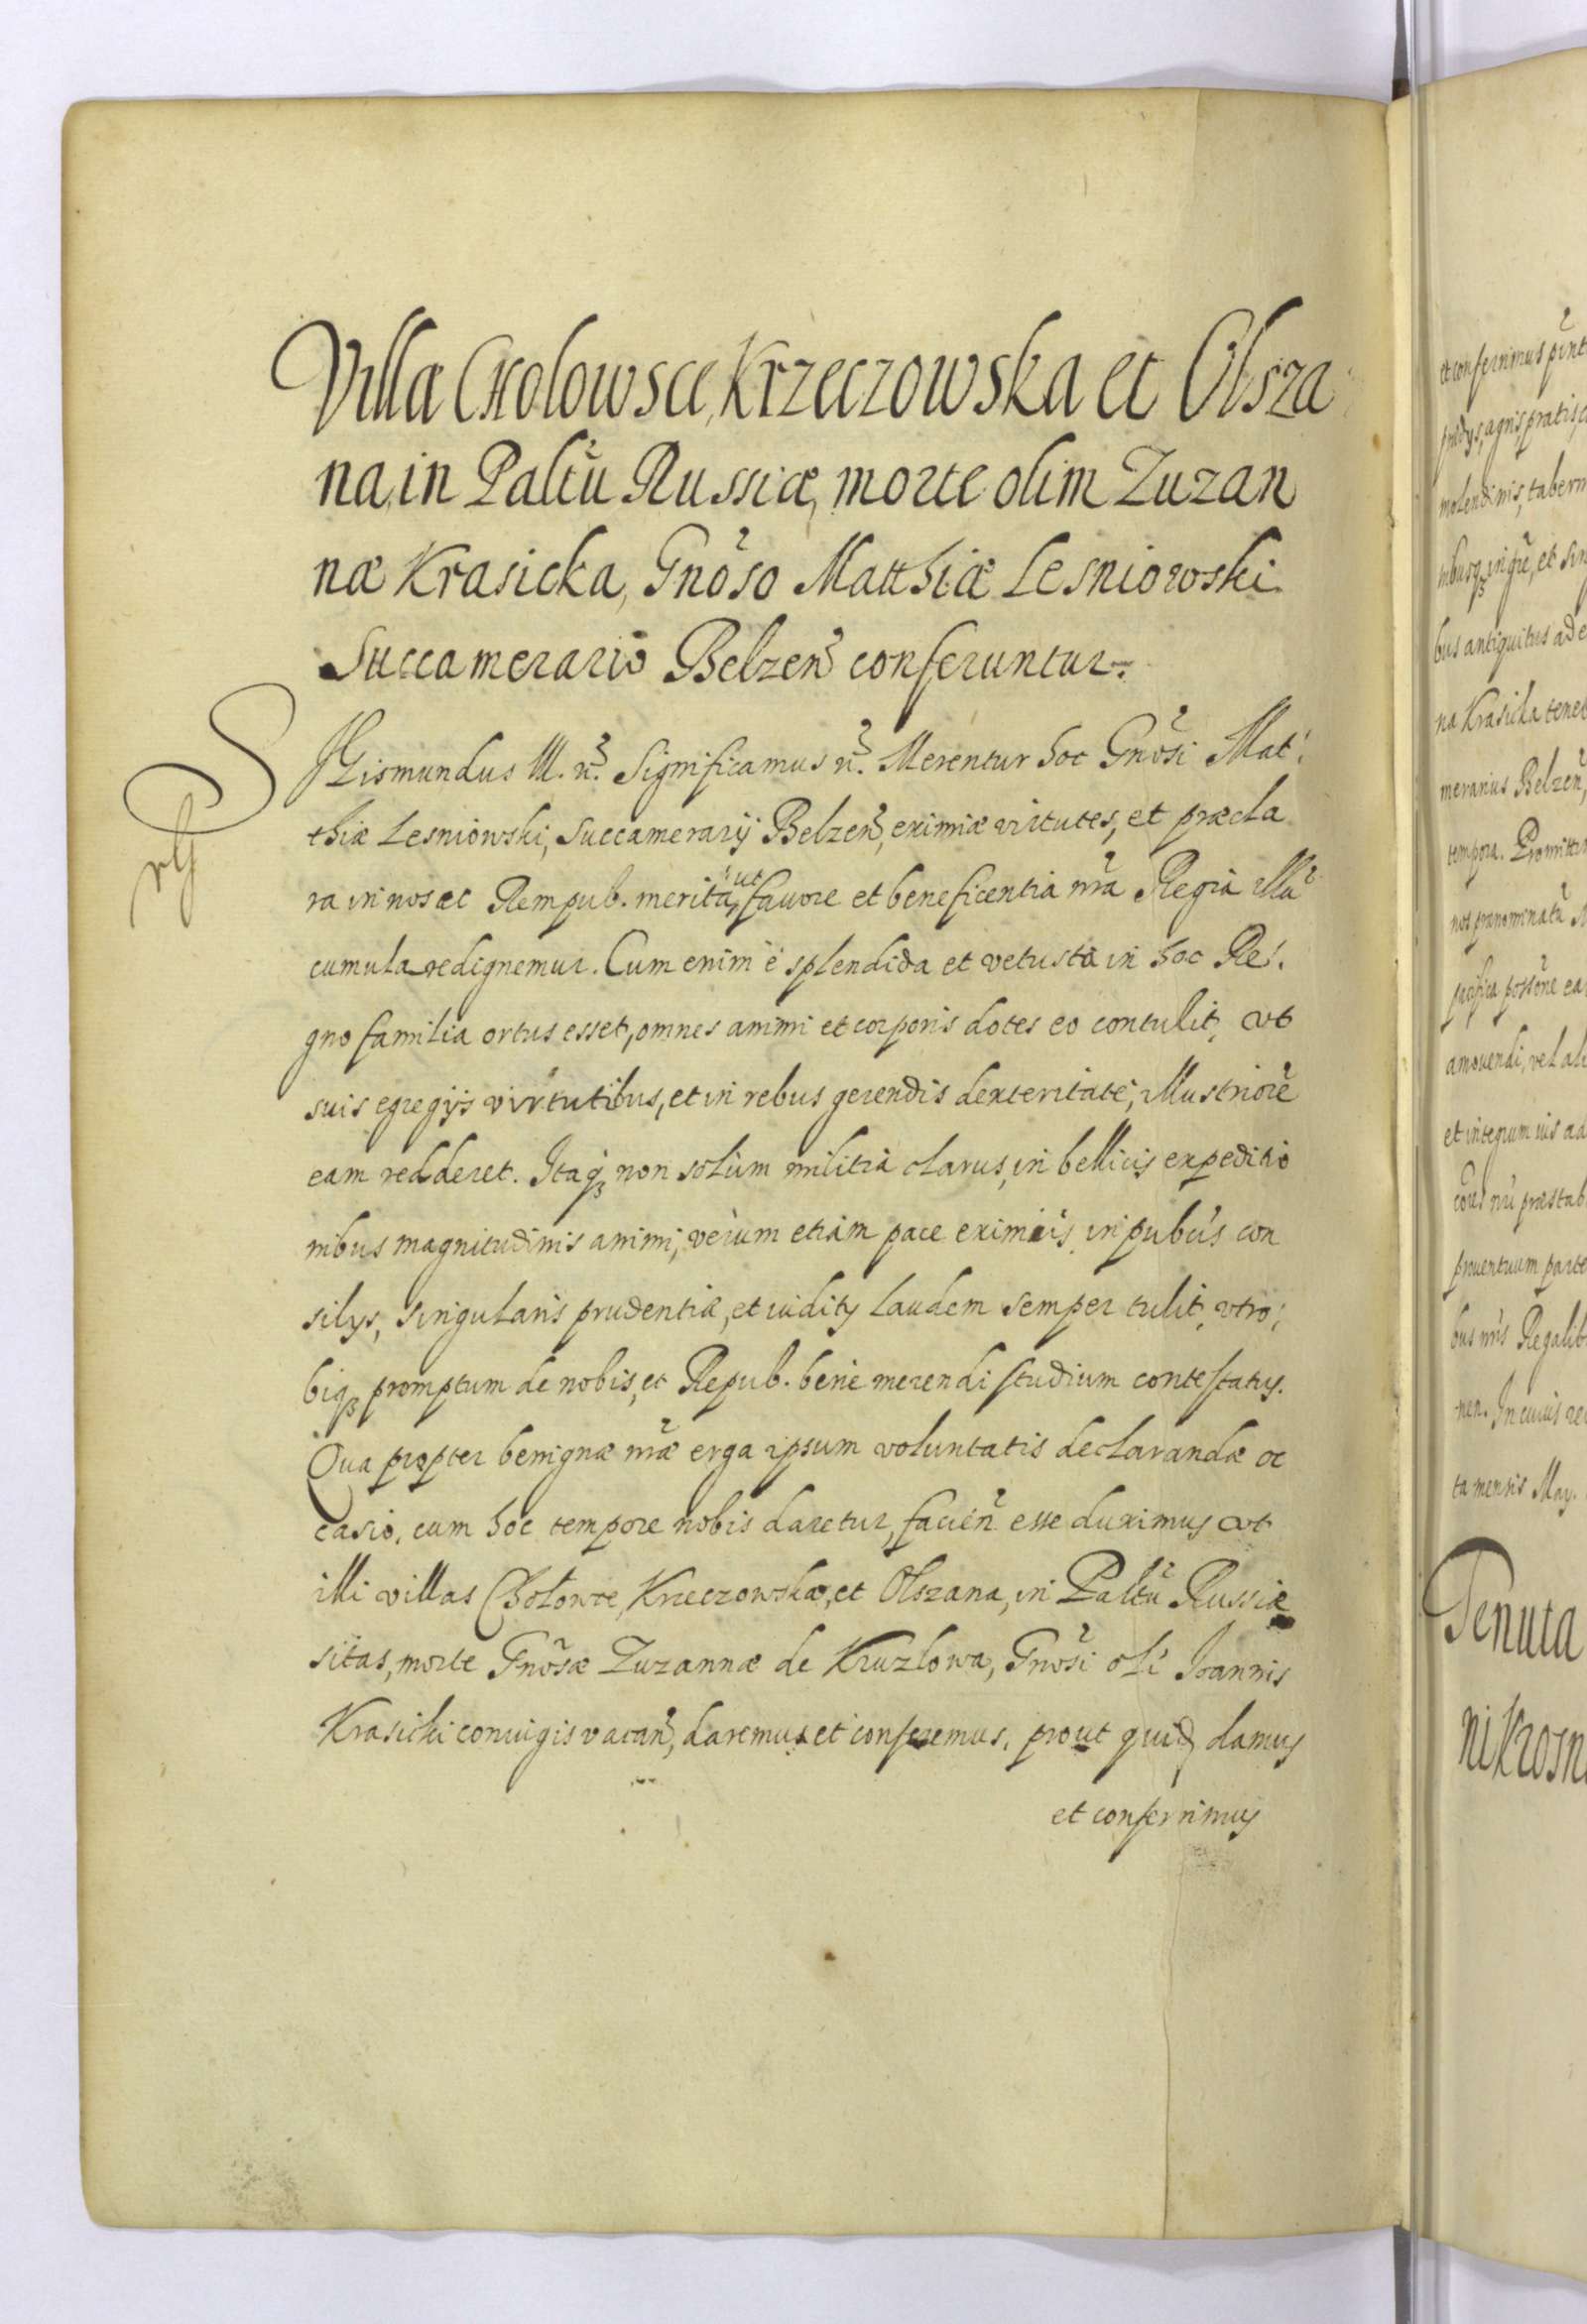 Villæ Cholowsce, Krzeczowska et Olsza
na, in Paltũ Russiæ, morte olim Zuzan
næ Krasicka, Gnõso Matthiæ Lesniowski
Succamerario Belzeñ conferuntur.
SIGismundus III. ñ. Significamus ñ. Merentur hoc Gnõsi Mat:
thiæ Lesniowski, Succamerarij Belzeñ, eximiæ virtutes, et præcla
ra in nos ac Rempub. merita, ut fauore et beneficentia nr̃a Regia illũ
cumulare dignemur. Cum enim è splendida et vetusta in hoc Re:
gno familia ortus esset, omnes animi et corporis dotes eo contulit, vt
suis egregijs virtutibus, et in rebus gerendis dexteritate, illustriorẽ
eam redderet. Itaq3 non solùm militia clarus, in bellicis expeditio
nibus magnitudinis animi, verum etiam pace eximius, in pubcis con
silys, singularis prudentiæ, et iudity laudem semper tulit, vtro:
biq3 promptum de nobis, et Repub. bene merendi studium contestatus.
Qua propter benignæ nr̃æ erga ipsum voluntatis declarandæ oc
casio, cum hoc tempore nobis daretur, facieñ esse duximus vt
illi villas Chołowce, Krzeczowska, et Olszana, in Paltũ Russiæ
sitas, morte Gnõsæ Zuzannæ de Kruzlowa, Gnõsi oli Joannis
Krasicki coniugis vacañ, daremus et conferemus, prout quid damus
et conferimus
et conferimus
molendinis, tabern
bus antiquitus ad e
na Krasicka tene
merarius Belzeñ,
tempora. Promitti
amouendi, vel al
et integrum ius ad
prouentuum parte
bus nr̃is Regalib
nen. In cuius re
ta mensis May.
Tenuta
ni Krosn